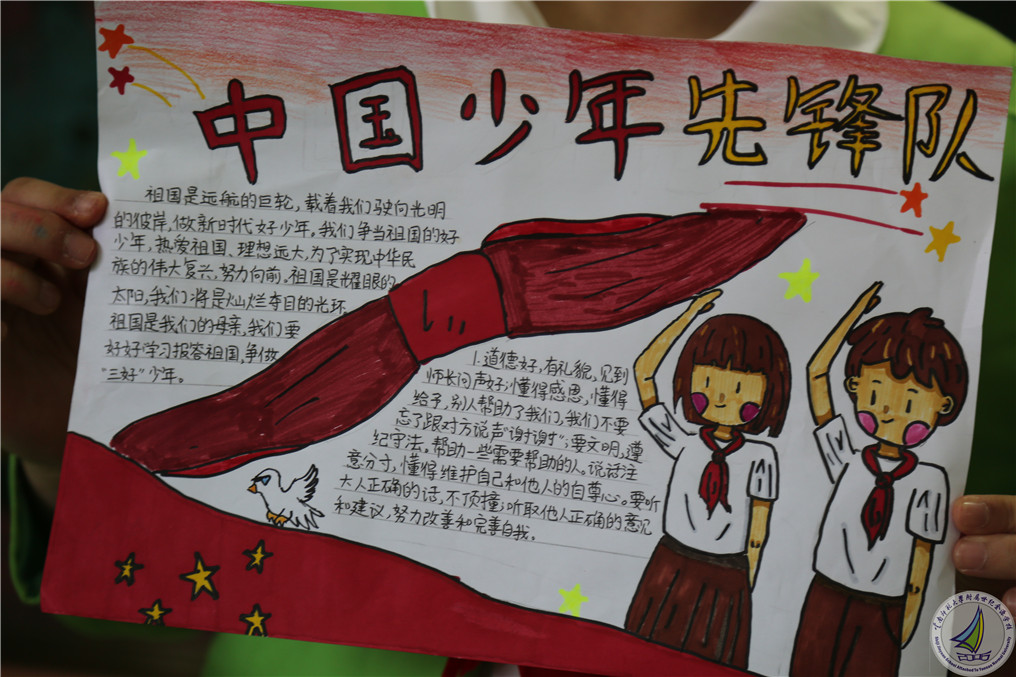 中国少年先锋队
祖国是远航的巨轮，载着我们驶向光明
的彼岸，做新时代好少年。我们争当祖国的好
少年，热爱祖国、理想远大，为了实现中华民
族的伟大复兴，努力向前，祖国是耀眼的
太阳，我们将是灿烂夺目的光环，
祖国是我们的母亲，我们要
好好学习报答祖国，争做
“三好”少年。
1.道德好，有礼貌，见到
师长问声好；懂得感恩，懂得
给予，别人帮助了我们，我们不要
忘了跟对方说声“谢谢”；要文明，遵
纪守法，帮助一些需要帮助的人。说话注
意分寸，懂得维护自己和他人的自尊心。要听
大人正确的话，不顶撞；听取他人正确的意见
和建议，努力改善和完善自我。
云南师范大学附属世纪金源学校